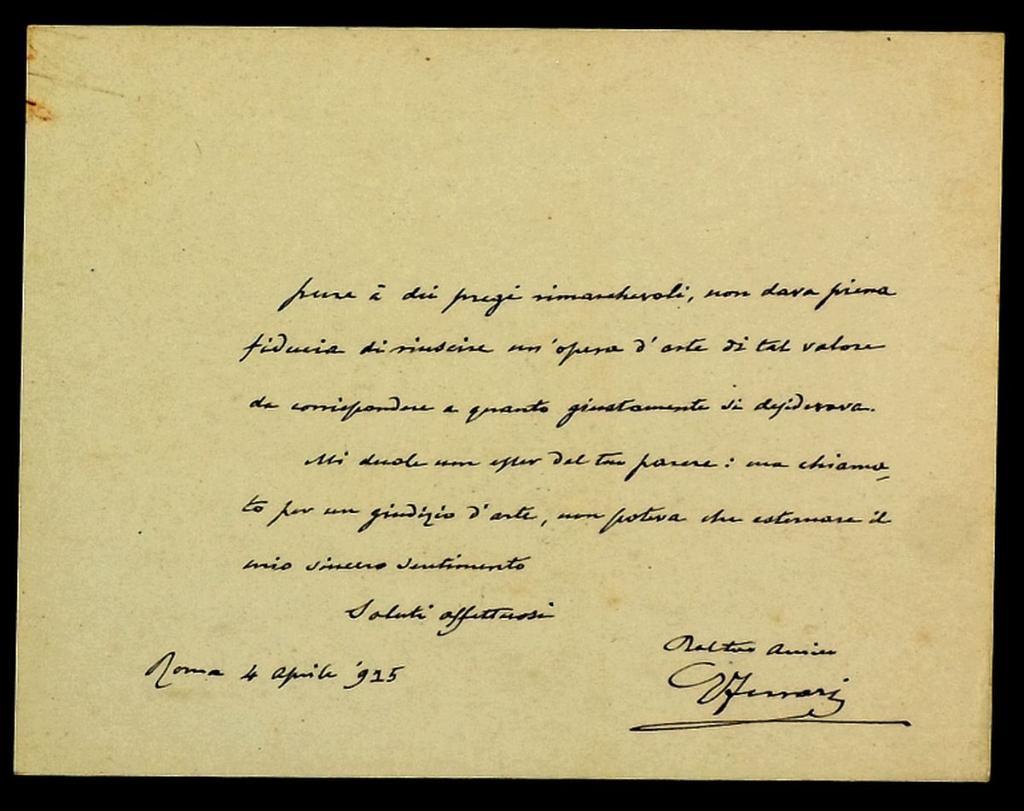 pure à dei pregi rimarchevoli, non dava piena
fiducia di riuscire un'opera d'arte di tal valore
da corrispondere a quanto giustamente si desiderava.
Mi duole non esser del tuo parere: ma chiama-
to per un giudizio d'arte, non poteva che esternare il
mio sincero sentimento
Saluti affettuosi
tuo amico
Roma 4 aprile '925
VFerrari